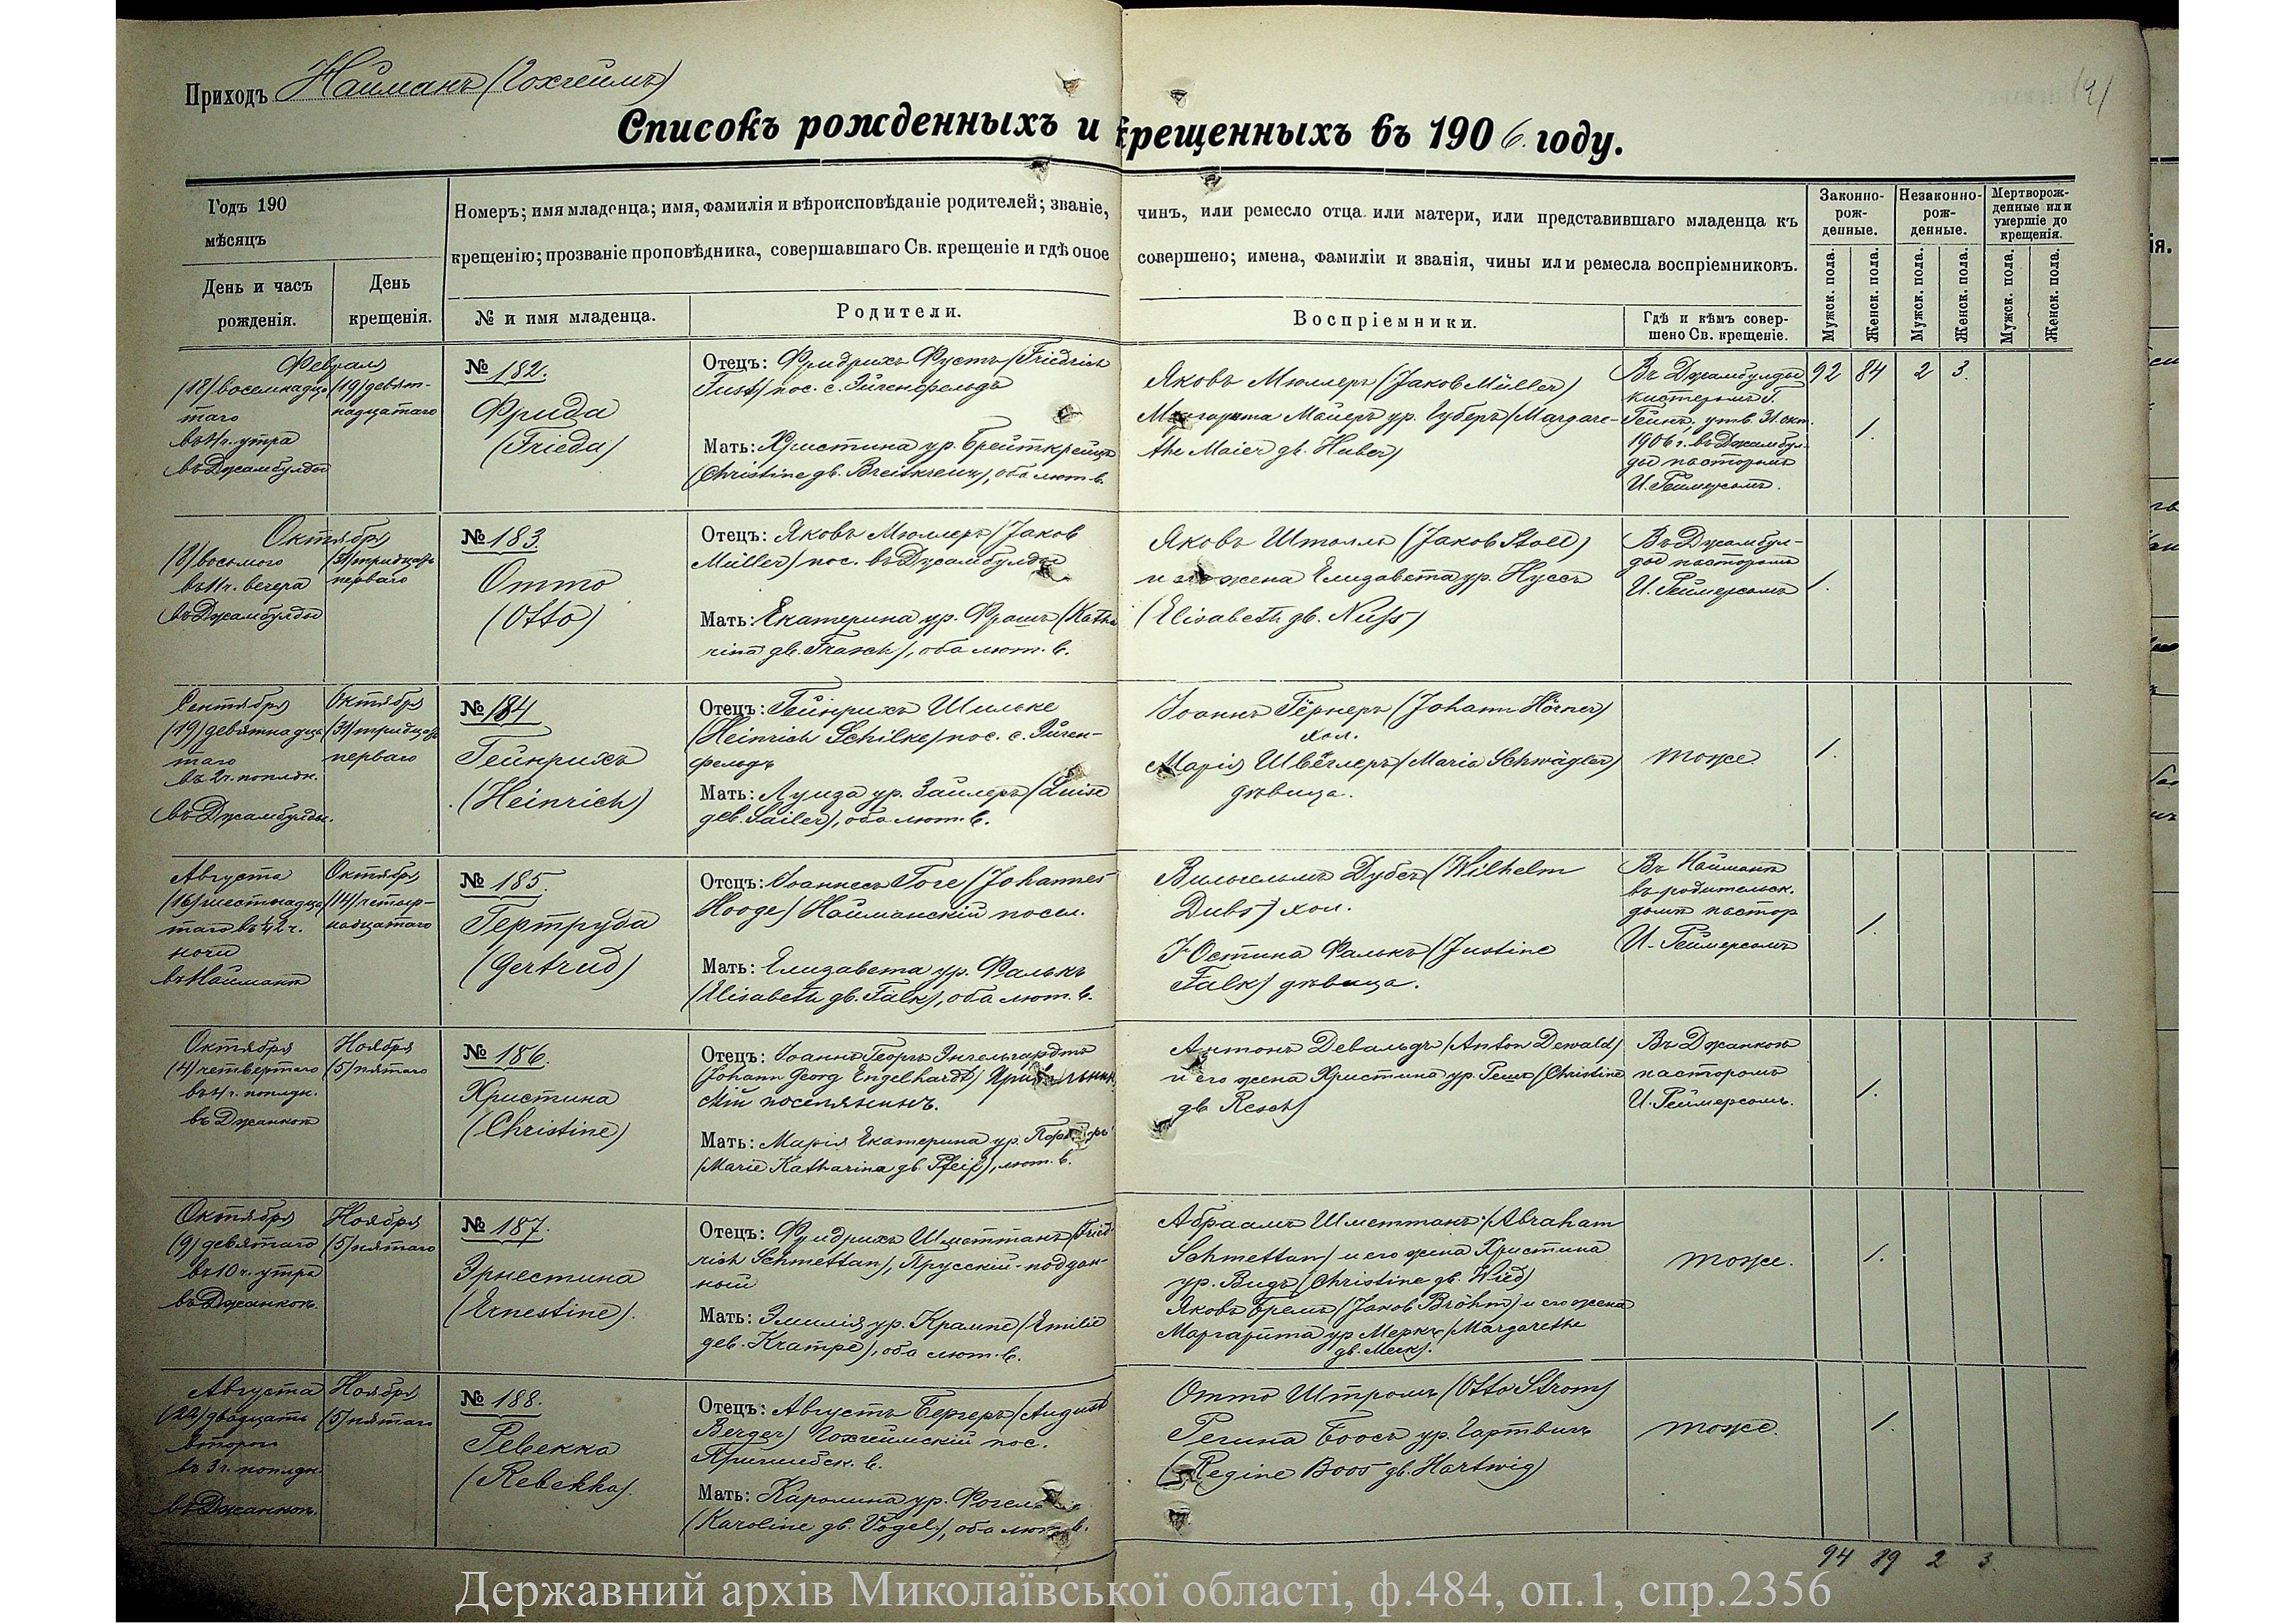 Приходъ Найманъ (Гохгеймъ)
Списокъ рожденныхъ и крещенныхъ въ 1906. году.
Годъ 190
мѣсяцъ
День и часъ
рожденія.
День
крещенія.
Номеръ; имя младенца; имя, фамилія и вѣроисповѣданіе родителей; званіе, чинъ, или ремесло отца или матери, или представившаго младенца къ
крещенію; прозваніе проповѣдника, совершавшаго Св. крещеніе и гдѣ оное совершено; имена, фамиліи и званія, чины или ремесла воспріемниковъ.
№ и имя младенца.
Родители.
Воспріемники.
Гдѣ и кѣмъ совер-
шено Св. крещеніе.
Законно-
рож-
денные.
Незаконно-
рож-
денные.
Мертворож-
денные или
умершіе до
крещенія.
Мужск. пола.
Женск. пола.
Мужск. пола.
Женск. пола.
Мужск. пола.
Женск. пола.
Февраля
(18) восемнадца
таго
въ 4 ч. утра
въ Джамбулды
(19) девят-
надцатаго
№ 182.
Фрида
(Frieda)
Отецъ: Фридрихъ Фустъ (Friedrich
Fust) пос. с. Эйгенфельдъ
Мать: Христина ур. Брейткрейцъ
(Christine дв. Breitkreuz), оба лют. в.
Яковъ Мюллеръ (Jakob Müller)
Маргарита Майеръ ур. Губеръ (Margare-
the Maier дв. Huber)
Въ Джамбулды
кистеромъ Г.
Гейне, утв. 31 окт.
1906 г. въ Джамбул-
ды пасторомъ
И. Геймерсомъ.
92 84 2 3.
1.
Октября
(8) восьмого
въ 11 ч. вечера
въ Джамбулды
(31) тридцать
перваго
№ 183.
Отто
(Otto)
Отецъ: Яковъ Мюллеръ (Jakob
Müller) пос. въ Джамбулды
Мать: Екатерина ур. Фрашъ (Katha
rina дв. Frasch), оба лют. в.
Яковъ Штолль (Jakob Stoll)
и его жена Елизавета ур. Нуссъ
(Elisabeth дв. Nuss)
Въ Джамбул-
ды пасторомъ
И. Геймерсомъ
1.
Сентября
(19) девятнадца
таго
въ 2 ч. пополдн.
въ Джамбулды.
Октября
(31) тридцать
перваго
№ 184
Гейнрихъ
(Heinrich)
Отецъ: Гейнрихъ Шильке
(Heinrich Schilke) пос. с. Эйген-
фельдъ
Мать: Луиза ур. Зайлеръ (Luise
дв. Sailer), оба лют. в.
Іоаннъ Гёрнеръ (Johann Hörner)
хол.
Марія Швеглеръ (Maria Schwägler)
дѣвица.
тоже
1.
Августа
(16) шестнадца
таго въ ½2 ч.
ночи
въ Найманѣ
Октября
(14) четыр-
надцатаго
№ 185.
Гертруда
(Gertrud)
Отецъ: Іоаннесъ Гоге (Johannes
Hooge) Найманскій посел.
Мать: Елизавета ур. Фалькъ
(Elisabeth дв. Falk), оба лют. в.
Вильгельмъ Дубсъ (Wilhelm
Dubs) хол.
Юстина Фалькъ (Justine
Falk) дѣвица.
Въ Найманѣ
въ родительск.
домѣ пастор
И. Геймерсомъ
1.
Октября
(4) четвертаго
въ 4 ч. пополдн.
въ Джанкоѣ
Ноября
(5) пятаго
№ 186.
Христина
(Christine)
Отецъ: Іоаннъ Георгъ Энгельгардтъ
(Johann Georg Engelhardt)
скій поселянинъ.
Мать: Марія Екатерина ур.
(Marie Katharina дв. Pfeif), лют. в.
Антонъ Девальдъ (Anton Dewald)
и его жена Христина ур. Решъ (Christine
дв. Resch)
Въ Джанкоѣ
пасторомъ
И. Геймерсомъ.
1.
Октября
(9) девятаго
въ 10 ч. утра
въ Джанкоѣ.
Ноября
(5) пятаго
№ 187.
Эрнестина
(Ernestine).
Отецъ: Фридрихъ Шметтанъ (Fried
rich Schmettan), Прусскій-поддан-
ный
Мать: Эмилія ур. Крампе (Emilie
дв. Krampe), оба лют. в.
Абраамъ Шметтанъ (Abraham
Schmettan) и его жена Христина
ур. Видъ (Christine дв. Wied)
Яковъ Бремъ (Jakob Bröhm) и его жена
Маргарита ур. Меркъ (Margarethe
дв. Merk).
тоже.
1.
Августа
(22) двадцать
второго
въ 3 ч. пополдн.
въ Джанкоѣ.
Ноября
(5) пятаго
№ 188.
Ревекка
(Rebekka).
Отецъ: Августъ Бергеръ (August
Berger) Гохгеймскій пос.
Пришибск. в.
Мать: Каролина ур. Фогель
(Karoline дв. Vogel), оба лют. в.
Отто Штромъ (Otto Strom)
Регина Боосъ ур. Гартвигъ
(Regine Boos дв. Hartwig)
тоже.
1.
94 89 2 3.
Державний архів Миколаївської області, ф.484, оп.1, спр.2356